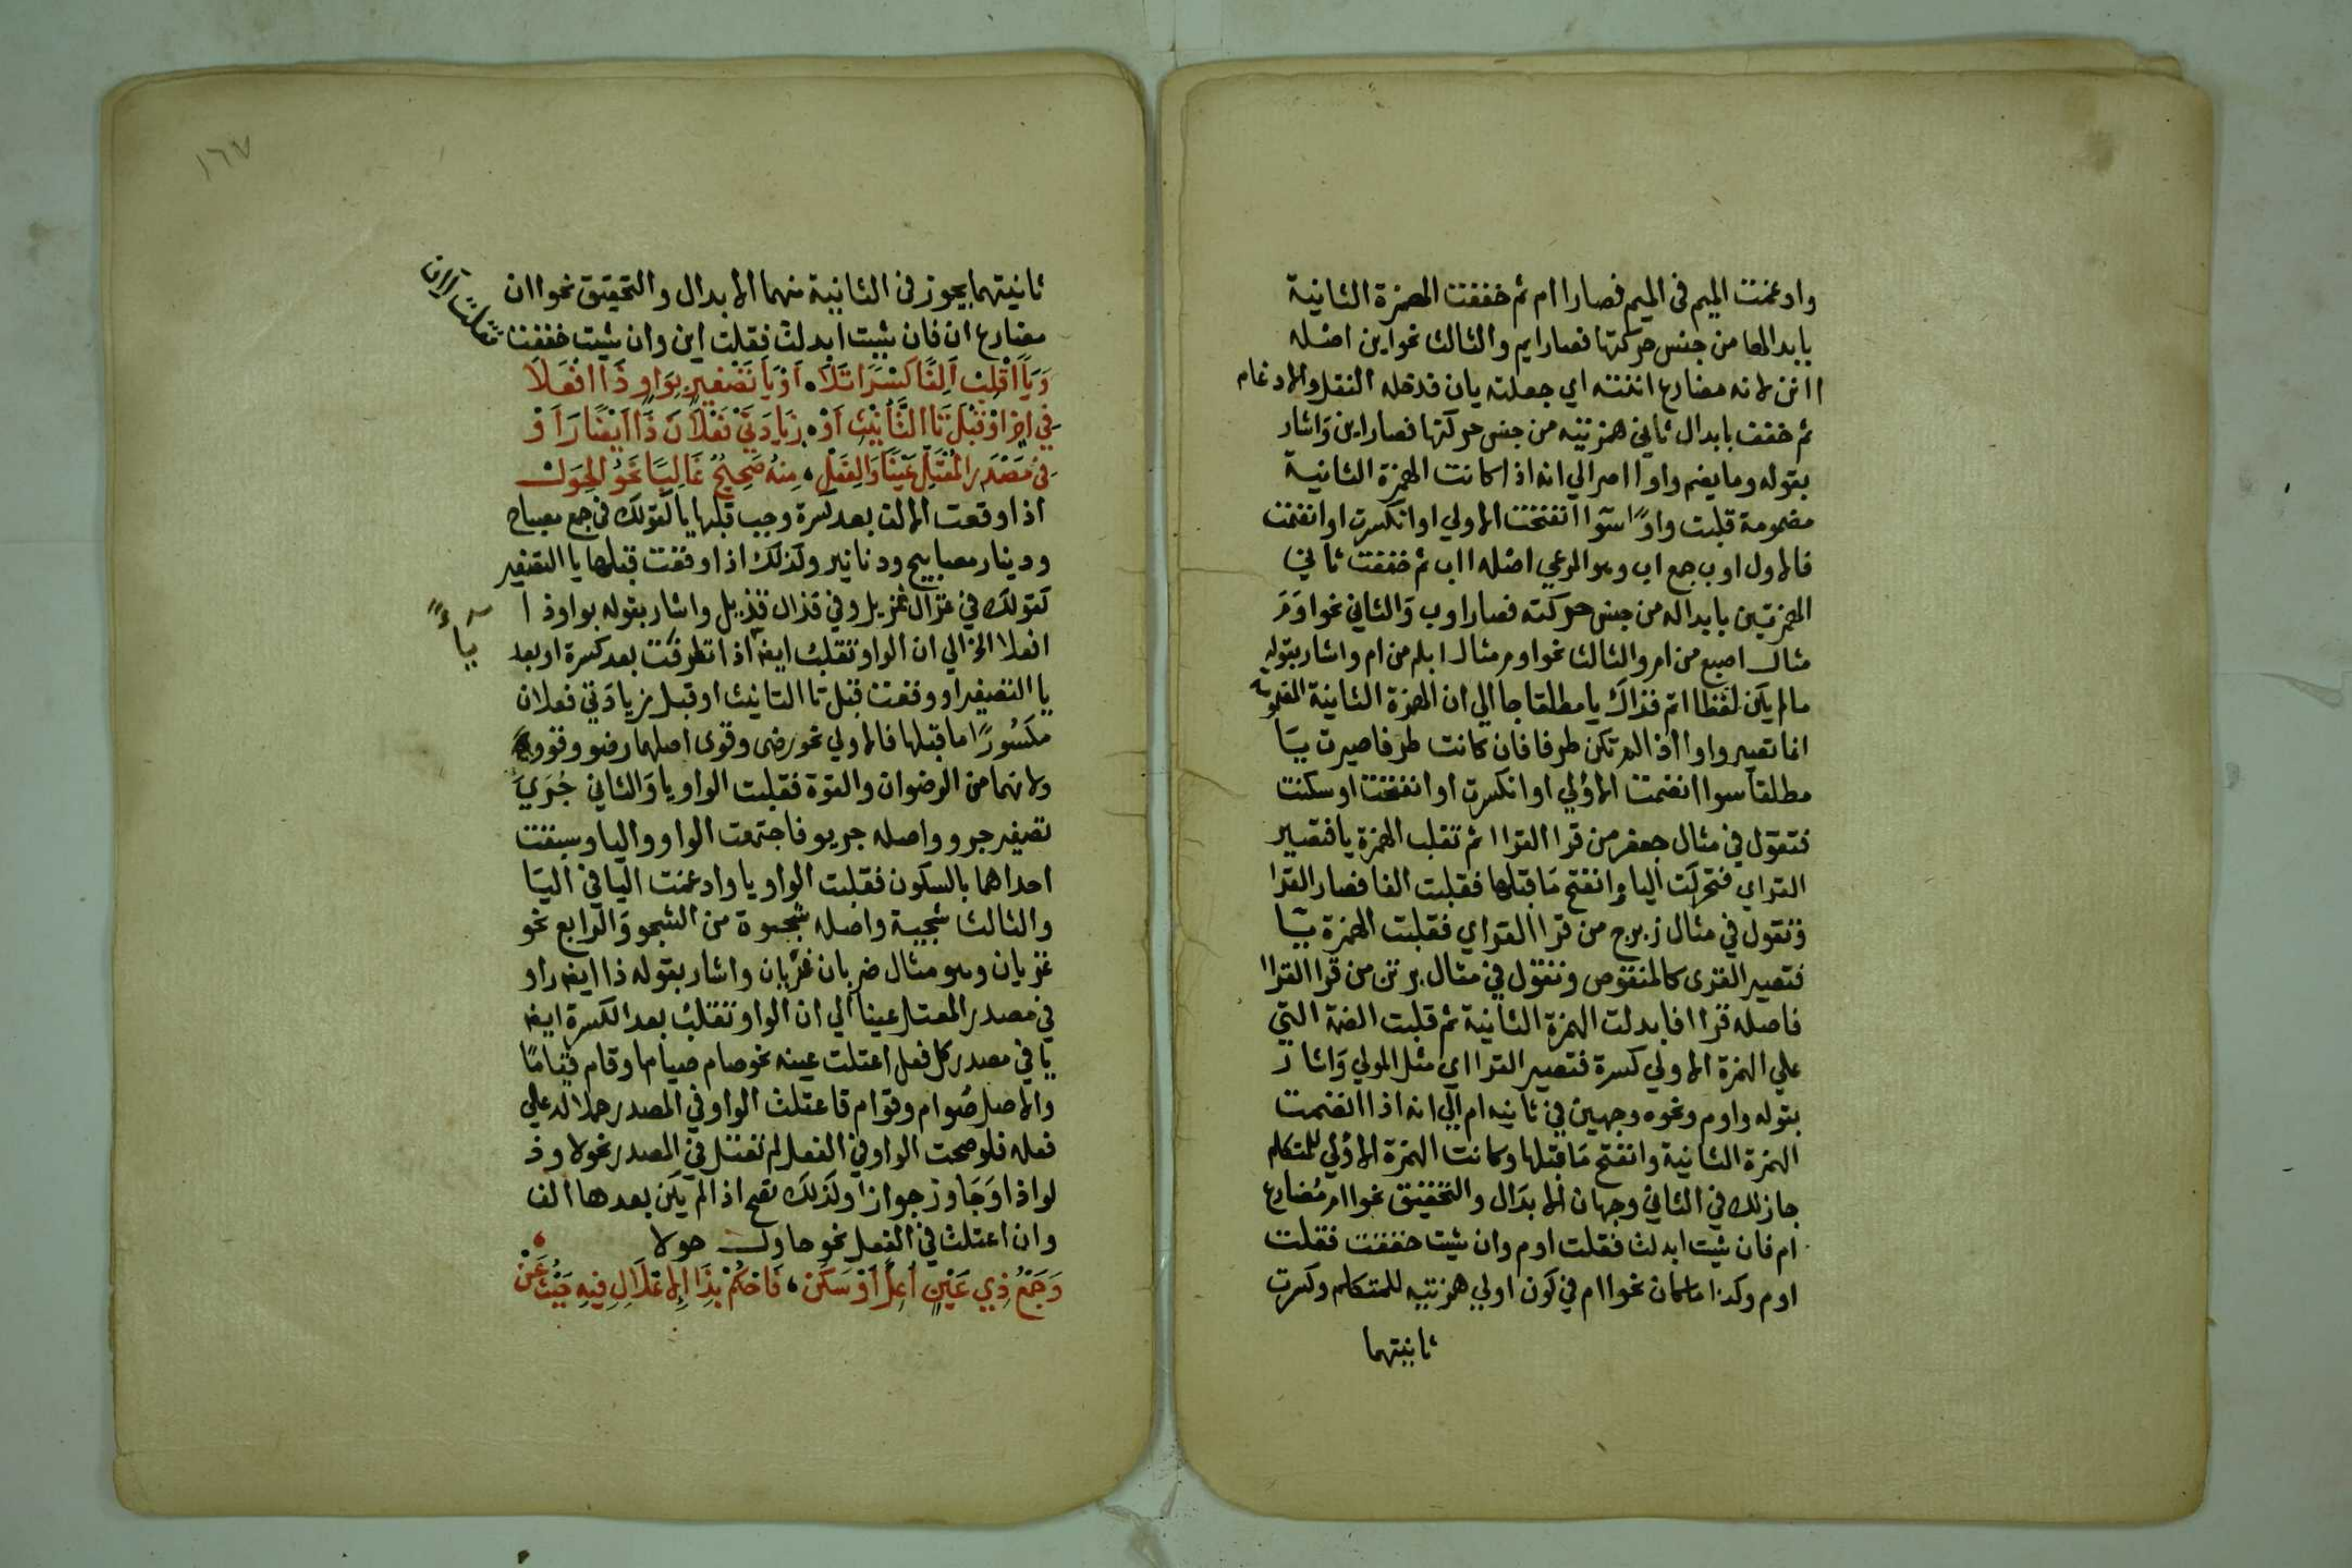 وادغمت الميم في الميم فصار اام ثم خففت الهمزة الثانية
بابدالها من جنس حركتها فصار ايم والثالث نحو اين اصله
اانن لانه مضارع اننته اي جعلته يان فدخله النقل والادغام
ثم خفف بابدال ثاني همزتيه من جنس حركتها فصار اين واشار
بقوله وما يضم واوا اصر الي انه اذا كانت الهمزة الثانية
مضمومة قلبت واوًا سوآ انفتحت الاولي او انكسرت او انضمت
فالاول اوب جمع اب وهو المرعي اصله ااب ثم خففت ثاني
الهمزتين بابداله من جنس حركته فصار اوب والثاني نحو اوم
مثال اصبع من ام والثالث نحو اوم مثال ابلم من ام واشار بقوله
مالم يكن لفظا اتم فذاك يا مطلقا جا الي ان الهمزة الثانية المضمومة
انما تصير واوا اذا لم تكن طرفا فان كانت طرفا صيرت يآ
مطلقا سوا انضمت الاولي او انكسرت او انفتحت او سكنت
فتقول في مثال جعفر من قرا القراا ثم تقلب الهمزة يا فتصير
القراي فتحركت اليا وانفتح ما قبلها فقلبت الفا فصار القرا
وتقول في مثال زبرج من قرا القراي فقلبت الهمزة يآ
فتصير القرى كالمنقوص وتقول في مثال برثن من قرا القراا
فاصله قراا فابدلت الهمزة الثانية ثم قلبت الضمة التي
علي الهمزة الاولي كسرة فتصير القرااي مثل المولي واشار
بقوله واوم ونحوه وجهين في ثانيه ام الي انه اذا انضمت
الهمزة الثانية وانفتح ما قبلها وكانت الهمزة الاولي للمتكلم
جاز لك في الثاني وجهان الابدال والتخفيق نحو اام مضارع
ام فان شيت ابدلت فقلت اوم وان شيت حففت فقلت
اوم وكذا ما كان نحو اام في كون اولي همزتيه للمتكلم وكسرت
ثانيتهما
١٦٧
ثانيتهما يجوز في الثانية منهما الابدال والتحقيق نحو اان
مضارع ان فان شيت ابدلت فقلت اين وان شيت خففت
فقلت اان
وَيَاً اقْلِبْ اَلِفًا كَسْرًا تَلَا، اَوْ يَا تَصْغِيرٍ بِوَاوٍ ذَا افْعَلَا
فِي اخِرٍ اوْ قَبْلَ تَا التَّأنِيْثِ اَوْ، زِيَادَتَيْ فَعْلَانَ ذَا اَيْضًا رَاَوْ
فِي مَصْدَرِ المُعْتَلِّ عَيْنًا وَالفِعَلْ، مِنْهُ صَحِيْحٌ غَالِبًا نَحْوُ الحِوَلْ
اذا وقعت الالف بعد كسرة وجب قلبها يا كقولك في جمع مصباح
ودينار مصابيح ودنانير وكذلك اذا وقعت قبلها يا التصغير
كقولك في غزال غزيل وفي قذال قذيل واشار بقوله بواو ذا
افعلا الخ الي ان الواو تقلب ايضا اذا تطرفت بعد كسرة او بعد
يآءً
يا التصغير او وقعت قبل تا التانيث او قبل زيادتي فعلان
مكسُورًا ما قبلها فالاولي نحو رضى وقوى اصلهما رضو وقوو
ولانهما من الرضوان والقوة فقلبت الواو يا والثاني جُرَيّ
تصغير جرو واصله جريو فاجتمعت الواو واليا وسبقت
احداهما بالسكون فقلبت الواو يا وادغمت اليا في اليا
والثالث شجية واصله شجوة من الشجو والرابع نحو
غزيان وهو مثال ضربان غزيان واشار بقوله ذا ايضا راو
في مصدر المعتل عينا الي ان الواو تقلب بعد الكسرة ايضا
يا في مصدر كل فعل اعتلت عينه نحو صام صياما وقام قيامًا
والاصل صوام وقوام فاعتلت الواو في المصدر حملا له علي
فعله فلو صحت الواو في الفعل لم تعتل في المصدر نحو لاوذ
لواذا وجاوز جوازا وكذلك تصح اذا لم يكن بعدها الف
وان اعتلت في الفعل نحو حاول حولا
وَجَمْعُ ذِي عَيْنٍ اُعِلَّ اَوْ سَكَنْ، فَاحْكُمْ بِذَا الاِعْلَالِ فِيهِ حَيْثُ عَنْ